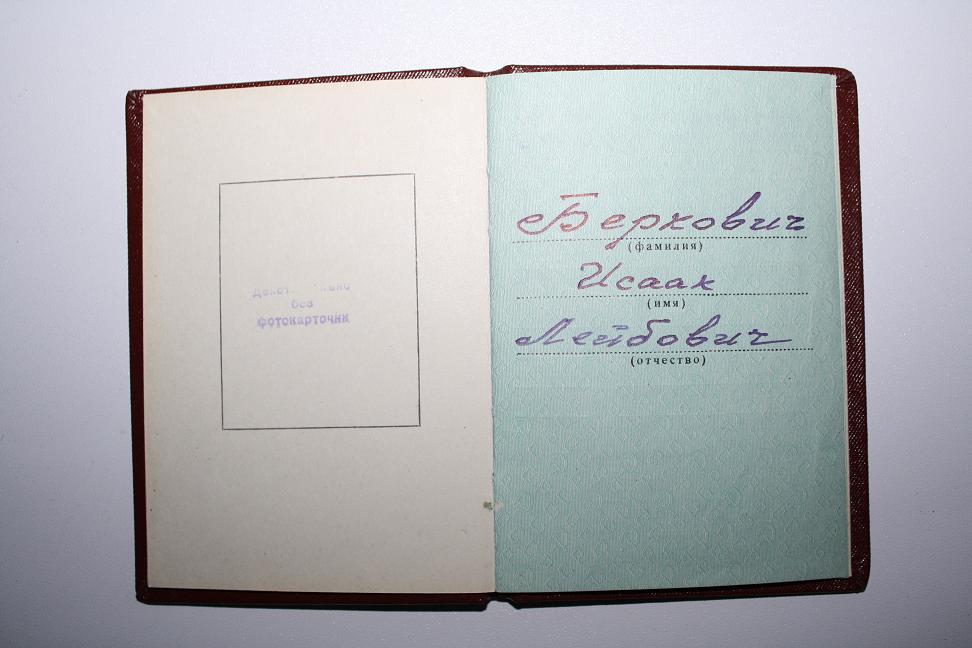 без
фотокарточки
Беркович
(фамилия)
Исаак
(имя)
Лейбович
(отчество)